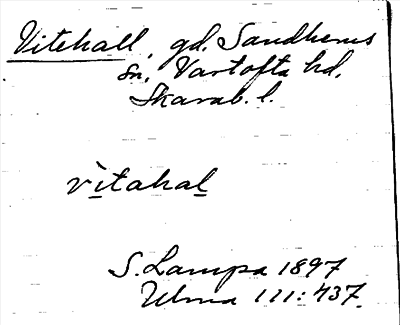 Vitehall, gd. Sandhems
sn, Vartofta hd.
Skarab. l.
vìtahal
S. Lampa 1897
Ulma 111:437.